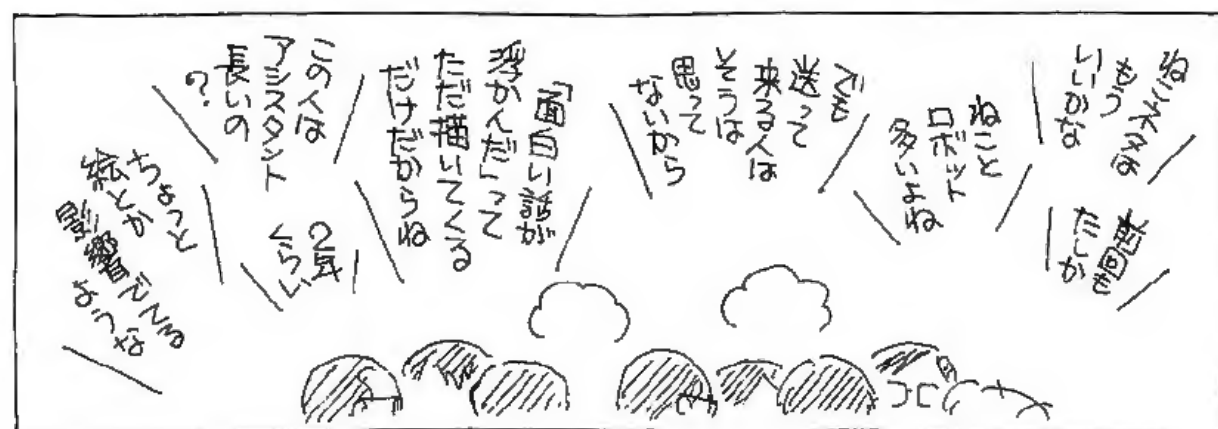 もう
いいかな
前回も
たしか
ねこと
ロボット
多いよね
でも
送って
来る人は
そうは
思って
ないから
「面白い話が
浮かんだ」って
ただ描いてくる
だけだからね
この人は
アシスタント
長いの
?
2年
くらい
ちょっと
絵とか
影響でてる